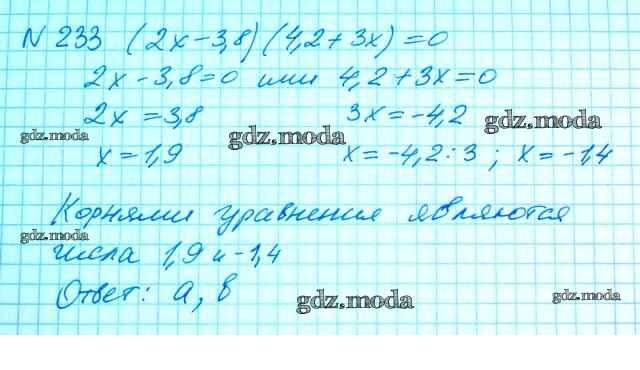 N 233 (2x-3,8)(4,2+3x)=0
2x-3,8=0 или 4,2+3x=0
2x=3,8 3x=-4,2
gdz.moda gdz.moda gdz.moda
x=1,9 x=-4,2:3; x=-1,4
Корнями уравнения являются
gdz.moda
числа 1,9 и -1,4
Ответ: а, в
gdz.moda gdz.moda